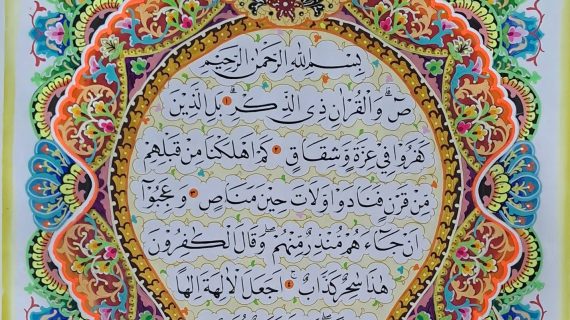 بِسْمِ اللهِ الرَّحْمٰنِ الرَّحِيْمِ
صۤ وَالْقُرْاٰنِ ذِى الذِّكْرِۗ ١ بَلِ الَّذِيْنَ
كَفَرُوْا فِيْ عِزَّةٍ وَّشِقَاقٍ ٢ كَمْ اَهْلَكْنَا مِنْ قَبْلِهِمْ
مِّنْ قَرْنٍ فَنَادَوْا وَّلَاتَ حِيْنَ مَنَاصٍ ٣ وَعَجِبُوْٓا
اَنْ جَاۤءَهُمْ مُّنْذِرٌ مِّنْهُمْۖ وَقَالَ الْكٰفِرُوْنَ
هٰذَا سٰحِرٌ كَذَّابٌۚ ٤ اَجَعَلَ الْاٰلِهَةَ اِلٰهًا